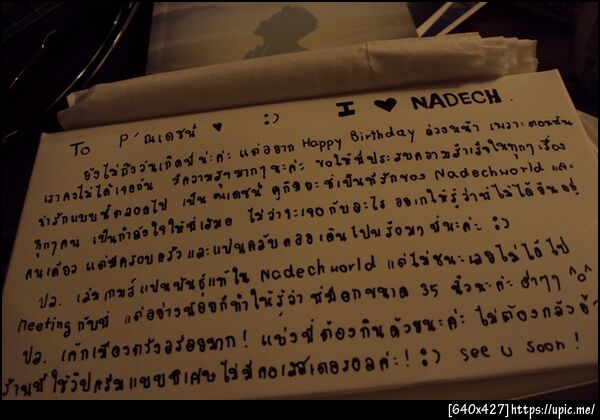 I ♥ NADECH.
To P' ณเดชน์ ♥ :)
ยังไม่ถึงวันเกิดพี่นะค่ะ แต่อยาก Happy Birthday ล่วงหน้า เพราะตอนนั้น
เราคงไม่ได้เจอกัน มีความสุขมากๆนะค่ะ ขอให้พี่ประสบความสำเร็จในทุกๆเรื่อง
น่ารักแบบนี้ตลอดไป เป็น ณเดชน์ คูกิมิยะ ที่เป็นที่รักของ Nadechworld และ
ทุกๆคน เป็นกำลังใจให้พี่เสมอ ไม่ว่าจะเจอกับอะไร ขอให้รู้ว่าพี่ไม่ได้ยืนอยู่
คนเดียว แต่มีครอบครัว และแฟนคลับคอยเดินไปพร้อมๆพี่นะค่ะ :)
ปล. เล่มเกมส์แฟนพันธุ์แท้ใน Nadechworld แต่ไม่ชนะเลยไม่ได้ไป
Meeting กับพี่ แต่อย่างน้อยก็ทำให้รู้ว่า พี่มีอกขนาด 35 นิ้วนะค่ะ ฮ่าๆๆ ^o^
ปล. เค้กเมืองตรังอร่อยมาก! แบ่งพี่ต้องกินด้วยนะค่ะ ไม่ต้องกลัวอ้วน
ร้านนี้ใช้วิปครีมแบบพิเศษ ไม่มีคอเลสเตอรอลค่ะ! :) see u soon!
[640x427]https://upic.me/